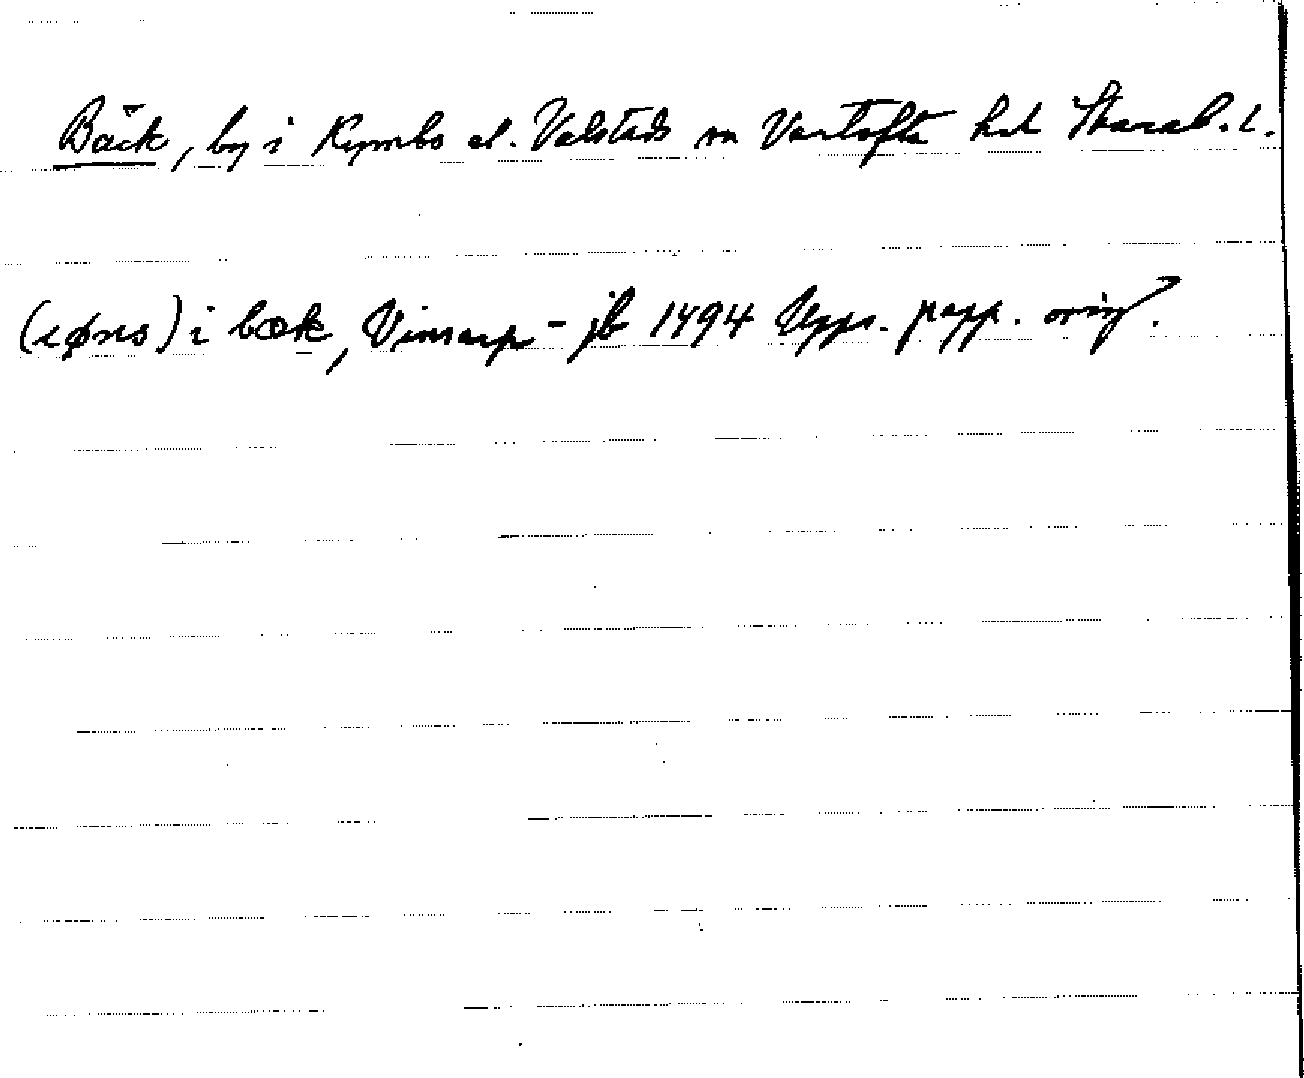 Bäck, by i Kymbo el. Valstads sn Vartofta hd Skarab. l.
(iønis) i bæk, Vinsarp - jb 1494 Upps. papp. orig.